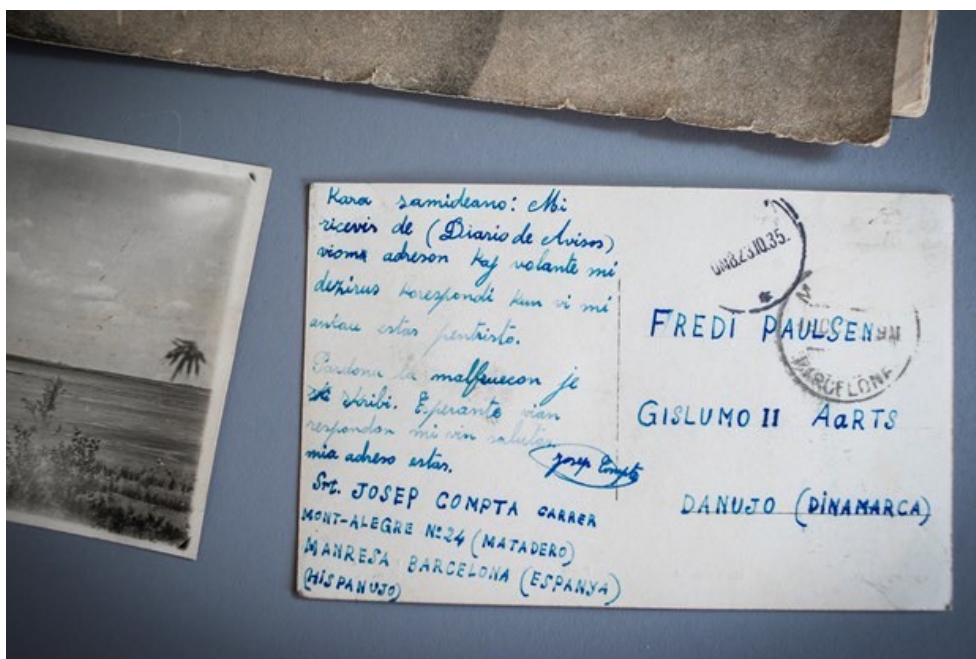 Kara samideano: Mi
ricevis de (Diario de Avisos)
viomn adreson Kaj volante mi
dezirus Korespondi Kun vi mi
antau estas pentristo.
Pardonu la malfeuecon je
skribi. Esperante vian
respondon mi vin salutas
mia adreso estas.
Josep Compta
Srt. JOSEP COMPTA CARRER
MONT-ALEGRE Nº 24 (MATADERO)
MANRESA BARCELONA (ESPANYA)
(HISPANUJO)
23.10.35.
BARCELONA
FREDI PAULSEN
GISLUMO II AaRTS
DANUJO (DINAMARCA)